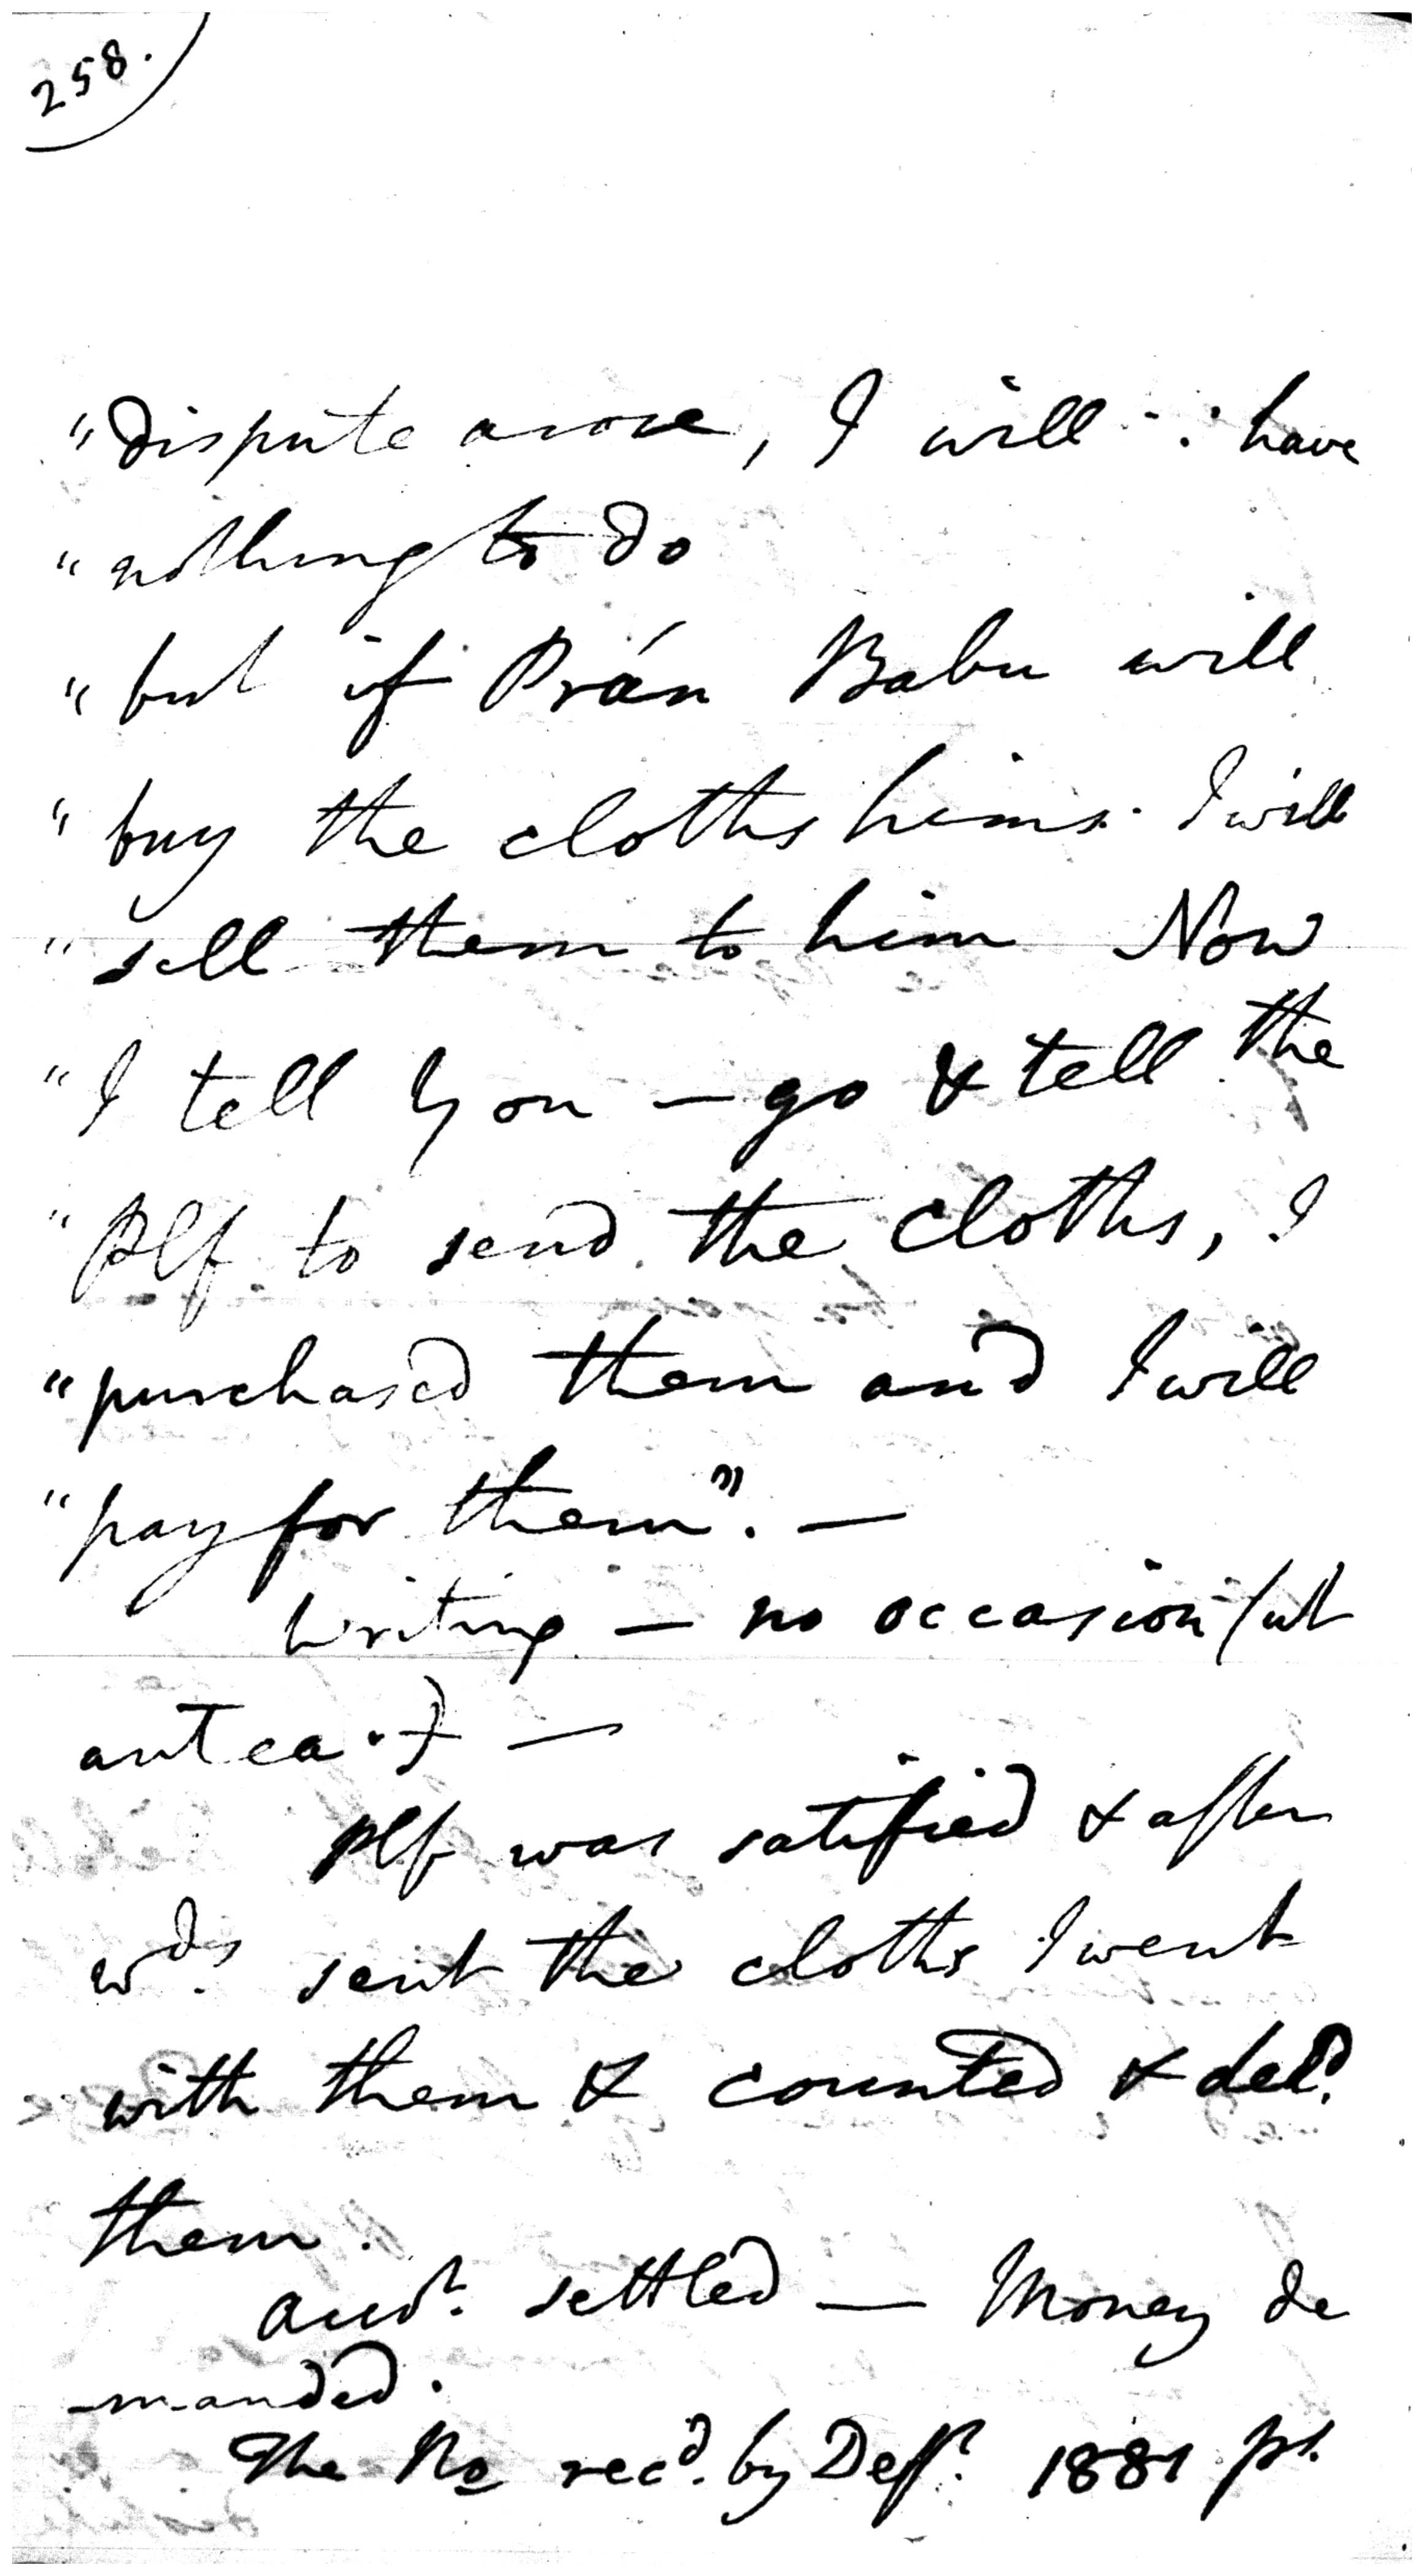 258.
"Dispute arose, I will have
"nothing to do
"but if Prán Babu will
"buy the cloths hims. I will
"sell them to him Now
"I tell you — go & tell the
"Plf to send the cloths, I
"purchased them and I will
"pay for them". —
Writing — no occasion (ut
antea.) —
Plf was satified & after
wds. sent the cloths I went
with them & counted & deld.
them.
settled — Money de
-manded.
The No recd. by Deft. 1881 ps.